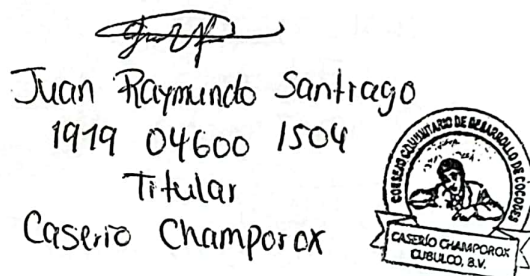 Juan Raymundo Santiago
1919 04600 1504
Titular
Caserio Champorox
CONSEJO COMUNITARIO DE DESARROLLO DE COCODES
CASERÍO CHAMPOROX
CUBULCO, B.V.